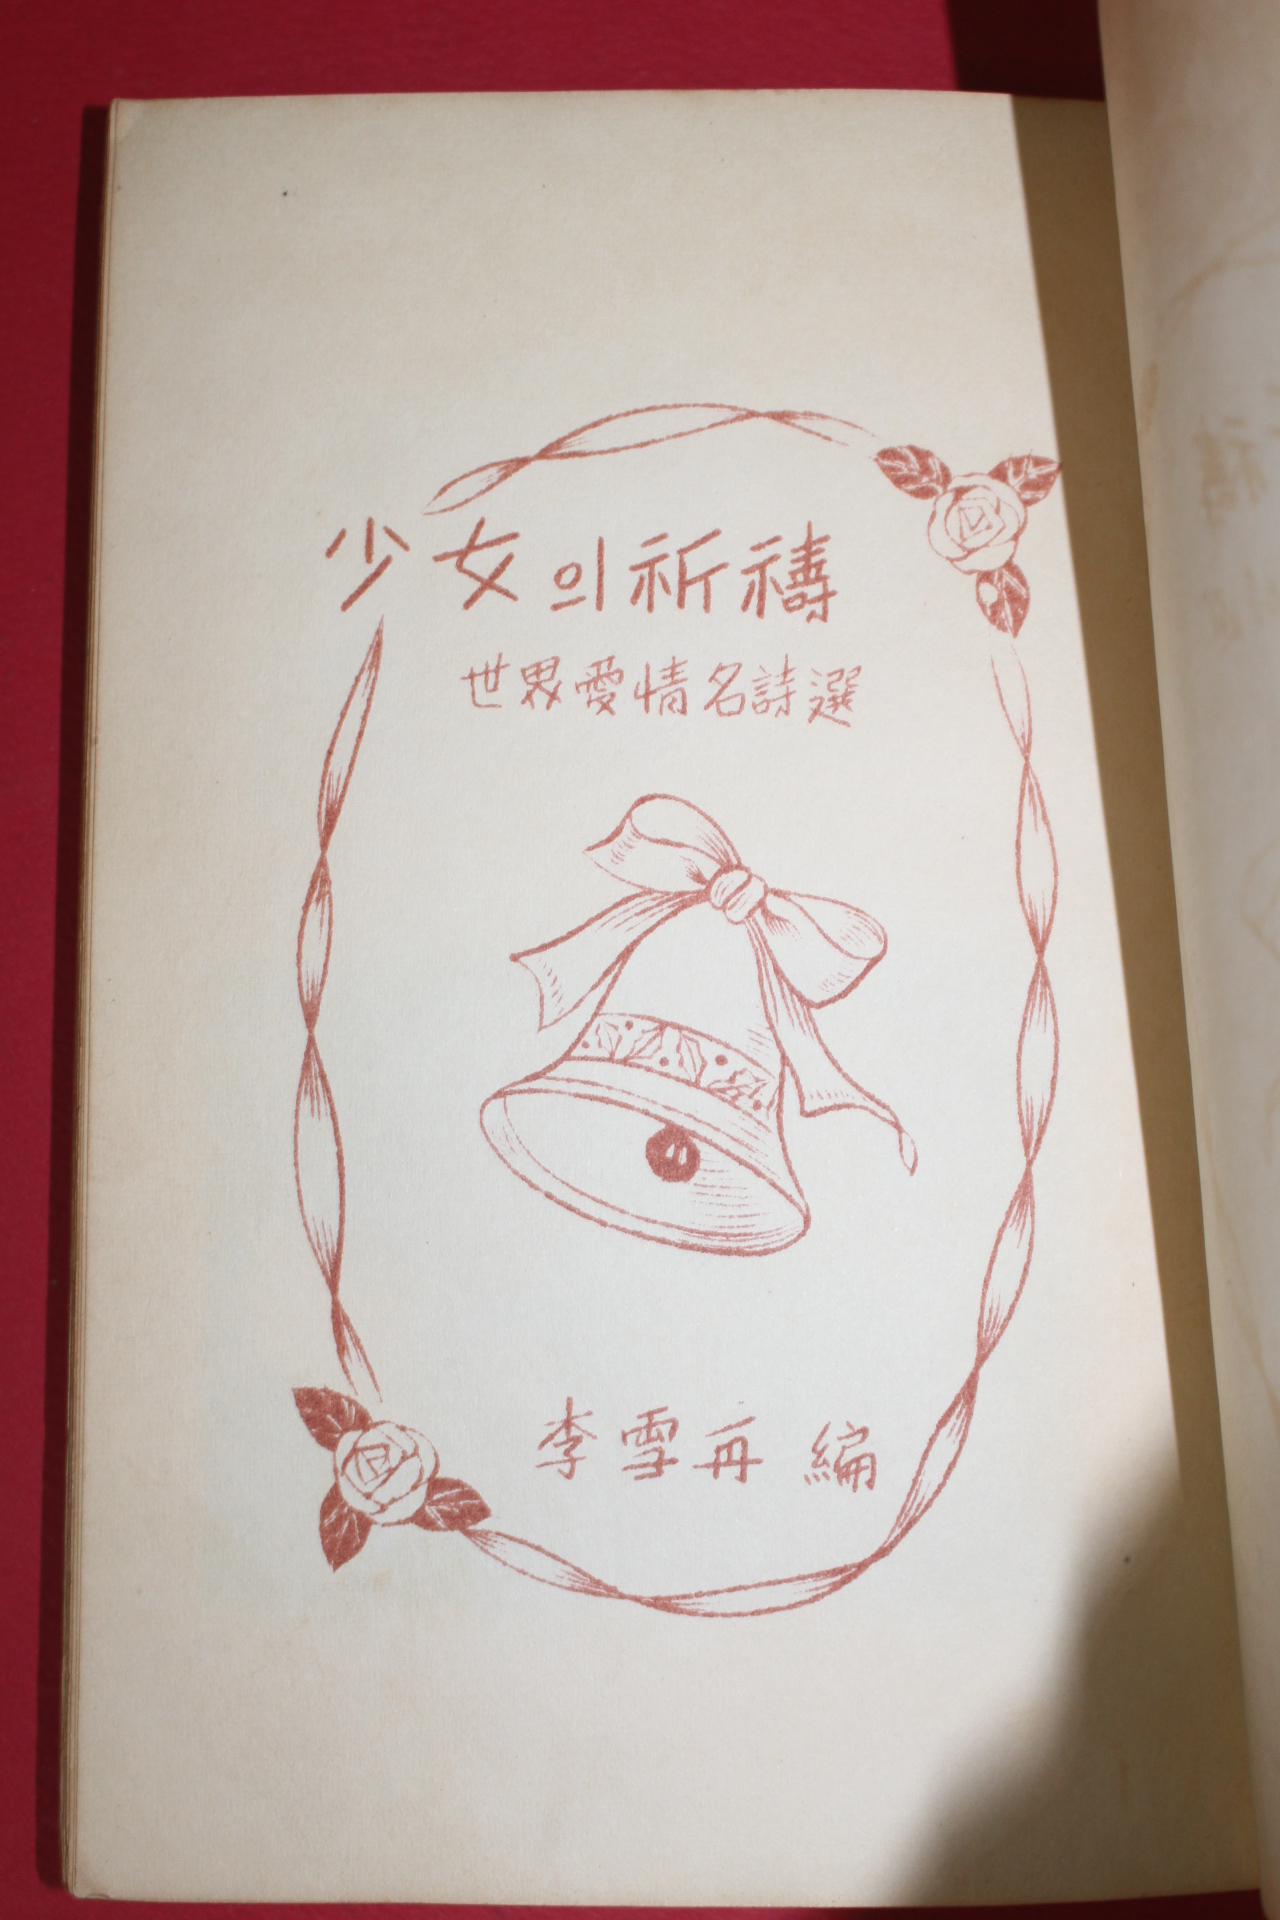 少女의祈禱
世界愛情名詩選
李雪舟 編